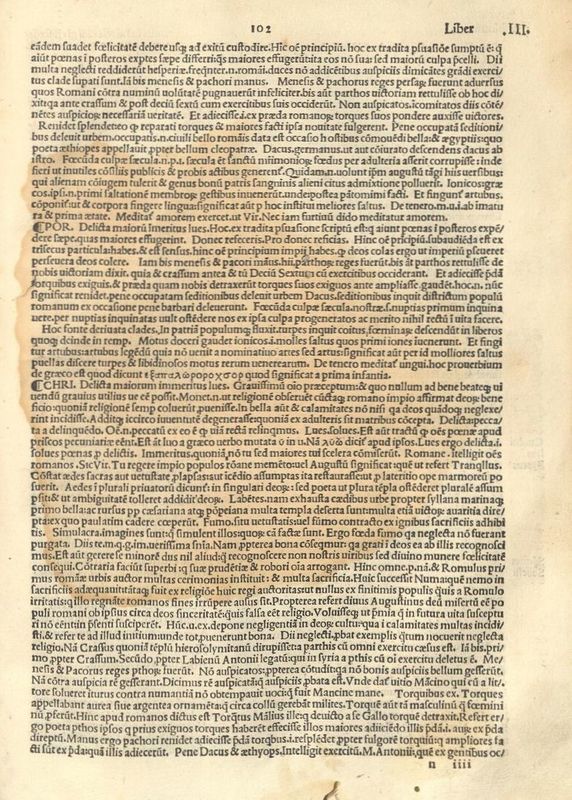 102 Liber .III.
eādem suadet fœlicitatē debere usq; ad exitū custodire. Hic oē principiū. hoc ex tradita psuasiōe sumptū ē: q̇
aiūt pœnas i posteros exptes sæpe differri: q̇s maiores effugerūt: ita eos nō sua: sed maiorū culpa pcelli. Dii
multa neglecti reddiderūt hesperiæ. freq̄nter .n. romāi. duces nō addicētibus auspiciis dimicātes grādi exerci/
tus clade supati sunt. Iā bis menesis & pachori manus. Menesis & pachorus reges persaȝ: fuerunt aduersus
quos Romani cōtra numinū uolūtatē pugnauerūt infeliciter. bis aūt parthos uictoriam rettulisse ob hoc di/
xit: q̇a ante crassum & post deciū sextū cum exercitibus suis occiderūt. Non auspicatos. icomitatos diis cōtē/
nētes auspicioȝ necessariā ueritatē. Et adiecisse .i. ex præda romanoȝ torques suos pondere auxisse uictores.
Renidet splendeteo q̇ reparati torques & maiores facti ipsa nouitate fulgerent. Pene occupatā seditioni/
bus deleuit urbem. occupatis .n. ciuili bello romāis data est occasio hostibus cōmouēdi bella: & ægyptiis: quo
poeta æthiopes appellauit, ppter bellum cleopatræ. Dacus. germanus. ut aut cōiurato descendens dacus ab
istro. Fœcūda culpæ sæcula .n. p. i. sæcula ēt sanctū mr̄imoniiȝ fœdus per adulteria asserit corrupisse: inde
fieri ut inutiles cōsiliis publicis & probis actibus generent. Quidam .n. uolunt ip̄m augustū tāgi hiis uersibus:
qui alienam cōiugem tulerit & genus bonū patris sanguinis alieni citus admixtione polluerit. Ionicos: græ
cos. ipsi .n. primi saltationē membroȝ gestibus inuenerūt. unde postea pātomimi facti. Et fingūnt artubus.
cōponiūt: ut & corpora fingere lingua: significat aūt p hoc institui meliores saltus. De tenero .m. u. i. ab imatu
ra & prima ætate. Meditat amorem exercet. ut Vir. Nec iam furtiuū dido meditatur amorem.
¶POR. Delicta maiorū īmeritus lues. Hoc ex tradita psuasione scriptū est: q̇ aiunt pœnas i posteros expē/
dere sæpe. quas maiores effugerint. Donec refeceris. Pro donec reficias. Hinc oē pricipiū. subaudiēda est ex
trisecus particula: habes. & est sensus. hinc oē principium impii habes. q̇ deos colas ergo ut imperiū psueret
perseuera deos colere. Iam bis menesis & pacori māus. hii. parthoȝ reges fuerūt. bis āt parthos rettulisse de
nobis uictoriam dixit. quia & crassum antea & tū Deciū Sextum cū exercitibus occiderant. Et adiecisse p̄dā
torquibus exiguis, & præda quam nobis detraxerūt torques suos exiguos ante ampliasse. gaudēt. hoc .n. nūc
significat renidet. pene occupatam seditionibus deleuit urbem Dacus. seditionibus inquit districtum populū
romanum ex occasione pene barbari deleuerunt. Fœcūda culpæ sæcula. nostras nuptias primum inquina
uere. per nuptias inquinatas uult ostēdere nos ex ipsa culpa progeneratos ac merito nihil rectū i uita facere.
Hoc fonte deriuata clades. In patriā populumq; fluxit. turpes inquit coitus, fœminaȝ descendūt in liberos
quoq; deinde in temp. Motus doceri gaudet ionicos. i. molles saltus quos primi iones iuenerunt. Et fingi
tur artubus: artubus legēdū quia nō uenit a nominatiuo artes sed artus: significat aūt per id molliores saltus
puellas discere turpes & libidinosos motus rerum uenerearum. De tenero meditat ungui. hoc prouerbium
de græco est quod dicunt quod significat a prima infantia.
¶CHRI. Delicta maiorum immeritus lues. Grauissimū oīo præceptum: & quo nullum ad bene beateq; ui
uendū grauius utilius ue eē possit. Monet .n. ut religionē obseruēt cūctaq; romano impio affirmat deoȝ bene
ficio: quoniā religionē semp coluerūt, puenisse. In bella aūt & calamitates nō nisi q̇a deos quādoq; neglexe/
rint incidisse. Additq; iccirco iuuentutē degenerasse: quoniā ex adulteris sit matribus cōcepta. Delicta: pecca/
ta a delinquēdo. Oē .n. peccati ex eo ē q̇ uia rectā relinqmus. Lues. solues. Est aūt tractū q̇ oēs pœnæ apud
priscos pecuniariæ eēnt. Est āt luo a græco uerbo mutata ὐ in u. Nā λυω̂ dicit apud ipsos. Lues ergo delicta. i.
solues pœnas, p delictis. Immeritus, quoniā, nō tu sed maiores tui scelera cōmiserūt. Romane. itelligit oēs
romanos. Sic Vir. Tu regere impio populos rōane memēto: uel Augustū significat: que ut refert Tranqllus.
Cōstat ædes sacras aut uetustate, plapsas: aut icēdio assumptas ita restaurasse ut, p lateritio ope marmoreū po
suerit. Aedes i plurali priuatorū dicunt in singulari deoȝ: sed poeta ut plura tēpla ostēderet plurale assum
psit: & ut ambiguitatē tolleret addidit deoȝ. Labētes. nam exhausta cædibus urbe propter syllana marinaq;
primo bella: ac rursus pp cæsatiana atq; pōpeiana multa templa deserta sunt: multa etiā uictoȝ auaritia dire/
pta: ex quo paulatim cadere cœperūt. Fumo. situ uetustatis: uel fūmo contracto ex ignibus sacrificiis adhibi
tis. Simulacra. imagines sunt: q̇ simulent illos: quoȝ cā factæ sunt. Ergo fœda fumo q̇a neglecta nō fuerant
purgata. Diis te .m. q. g. im. uerissima snīa. Nam, pptera bona cōsequimur: q̇a grati i deos ea ab illis recognosci
mus. Est aūt gerere se minorē dns nil aliud: q̇ recognoscere non nostris uiribus sed diuino munere fœlicitatē
consequi. Cōtraria faciūt superbi: q̇ suæ prudētiæ & robori oīa arrogant. Hinc omne. p. nā & Romulus pri
mus romāæ urbis auctor multas cerimonias instituit: & multa sacrificia. Huic successit Numa: que nemo in
sacrificiis adæquauit: tātaq; fuit ex religiōe huic regi auctoritas: ut nullus ex finitimis populis q̇uis a Romulo
irritatis: illo regnāte romanos fines irrūpere ausus sit. Propterea refert diuus Augustinus deū misertū eē po
puli romani ob ipsius circa deos sinceritatē: q̇uis falsa eēt religio. Voluisseq; ut pmia q̇ in futura uita suscepturi nō eēnt in psenti susciperēt. Huc .u. ex. depone negligentiā in deoȝ cultu: qua i calamitates multas incidi/
sti. & refer te ad illud initium: unde tot, puenerunt bona. Dii neglecti. pbat exemplis q̇tum nocuerit neglecta
religio. Nā Crassus quoniā tēplū hierosolymitanū diripuisset a parthis cū omni exercitu cæsus est. Iā bis. pri/
mo, ppter Crassum. Secūdo, ppter Labienū Antonii legatū: qui in syria a pthis cū oi exercitu deletus ē. Me/
nesis & Pacorus reges pthoȝ fuerūt. Nō auspicatos: pptterea cōtuditq; a nō bonis auspiciis bellum gessērūt.
Nā cōtra auspicia rē gesserant. Dicimus rē auspicatā: q̇ auspiciis, pbata est. Vnde dat uitio Mācino qui cū a lit/
tore solueret iturus contra numantiā nō obtemperauit uoci: q̇ fuit Mancine mane. Torquibus ex. Torques
appellabant aurea siue argentea ornamēta: q̇ circa collū gerebāt milites. Torquē aūt tā masculinū q̇ fœmini
nū, pserūt. Hinc apud romanos dictus est Torqtus Mālius ille: q̇ deuicto a se Gallo torquē detraxit. Refert er/
go poeta pthos ipsos q̇ prius exiguos torques haberēt effecisse illos maiores adiiciēdo illis p̄dā .i. auȝ ex p̄da
direptū. Manus ergo pachori renidet adiecisse p̄dā torqbus .i. resplēdet, ppter fulgorē torquiū: q̇ ampliores fa
cti sūt ex p̄da: quā illis adiecerūt. Pene Dacus & æthyops. Intelligit exercitū. M. Antonii: que ex gentibus oc/
n iiii